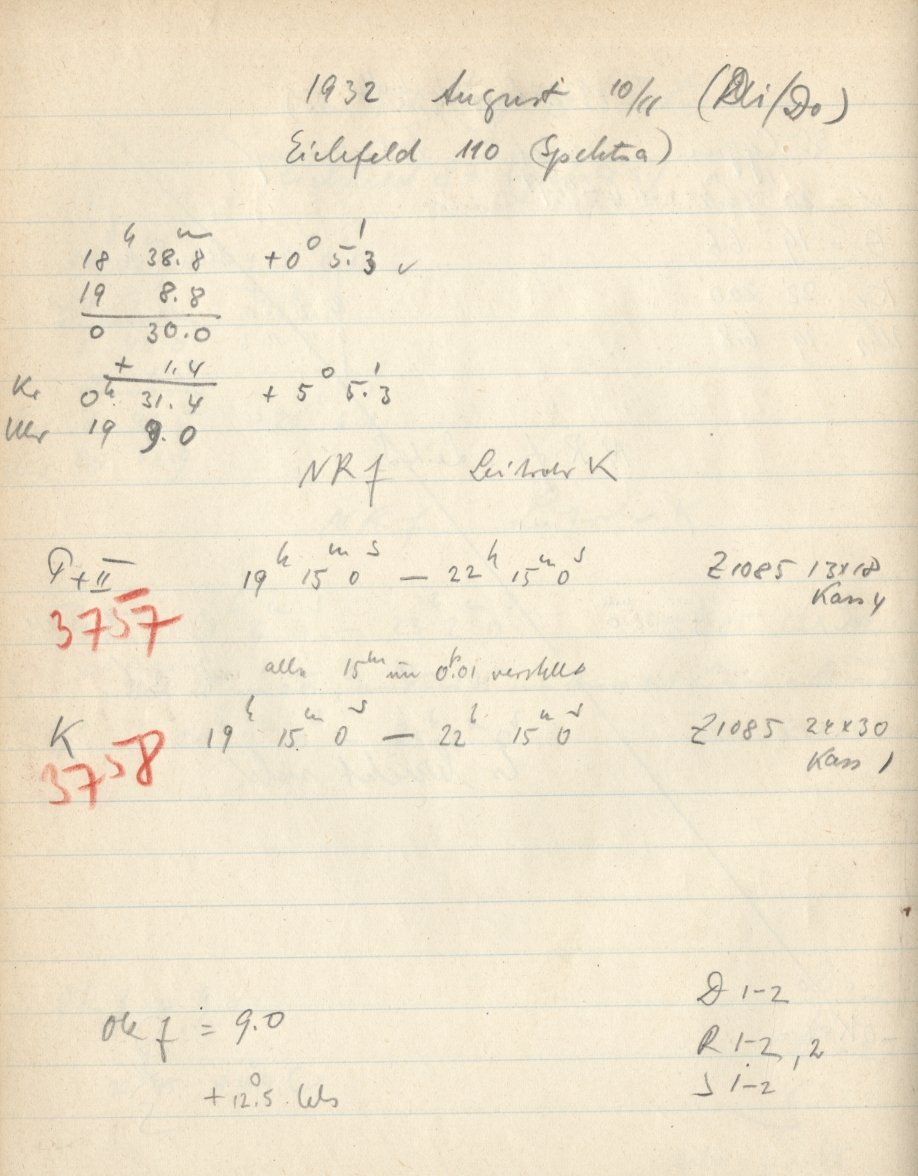 1932 August 10/11 (Di/Do)
Eichfeld 110 (Spektra)
18ʰ 38.8ᵐ +0° 5.3' ✓
19 8.8
0 30.0
+ 1.4
Kr 0ʰ 31.4 + 5° 5.3'
Uhr 19 9.0
NR f Leitrohr K
T + II 19ʰ 15ᵐ 0ˢ — 22ʰ 15ᵐ 0ˢ Z1085 13x18
Kass 4
3757
alle 15ᵐ um 0ᵖ.01 verstellt
K 19ʰ 15ᵐ 0ˢ — 22ʰ 15ᵐ 0ˢ Z1085 24x30
Kass 1
3758
D 1-2
Ok f = 9.0
R 1-2, 2
S 1-2
+ 12°.5 Cels